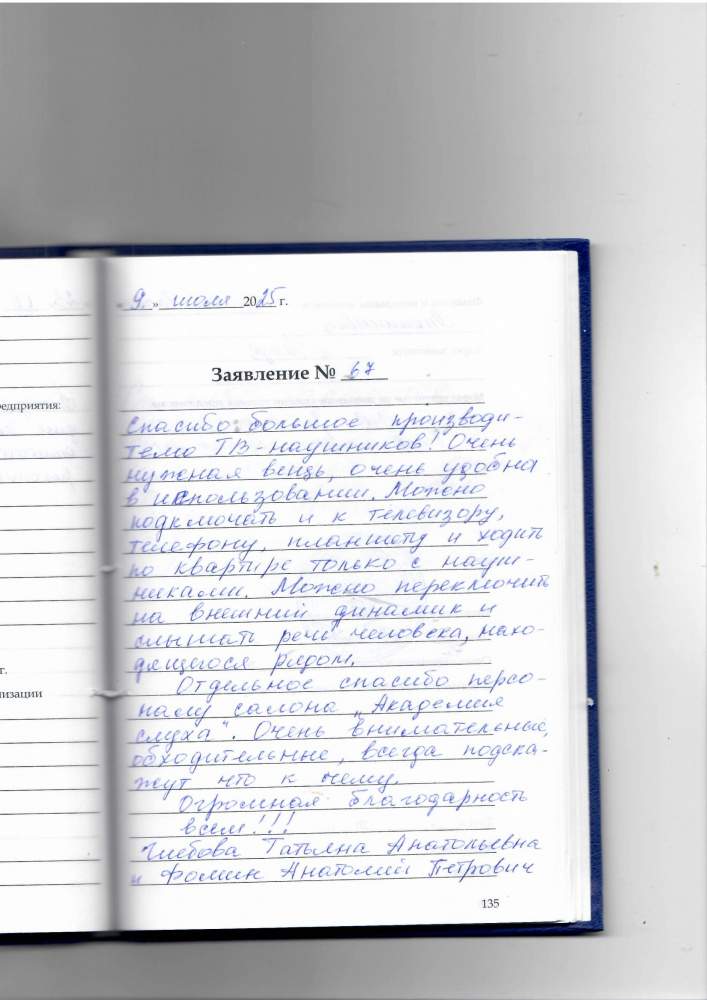 «9.» июля 2025 г.
Заявление № 67
Спасибо большое производи-
телю ТВ-наушников! Очень
нужная вещь, очень удобна
в использовании. Можно
подключать и к телевизору,
телефону, планшету и ходить
по квартире только с науш-
никами. Можно переключить
на внешний динамик и
слышать речь человека, нахо-
дящегося рядом.
Отдельное спасибо персо-
налу салона „Академия
слуха". Очень внимательные,
обходительные, всегда подска-
жут что к чему.
Огромная благодарность
всем!!!
Глебова Татьяна Анатольевна
и Фомин Анатолий Петрович
135
едприятия:
г.
низации